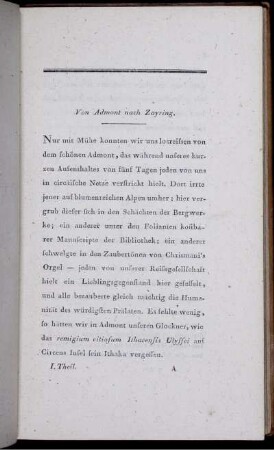 Von Admont nach Zeyring.
Nur mit Mühe konnten wir uns losreissen von
dem schönen Admont, das während unseres kur-
zen Aufenthaltes von fünf Tagen jeden von uns
in circäische Netze verstrickt hielt. Dort irrte
jener auf blumenreichen Alpen umher; hier ver-
grub dieser sich in den Schächten der Bergwer-
ke; ein anderer unter den Folianten kostba-
rer Manuscripte der Bibliothek; ein anderer
schwelgte in den Zaubertönen von Chrismani's
Orgel — jeden von unserer Reisegesellschaft
hielt ein Lieblingsgegenstand hier gefesselt,
und alle bezauberte gleich mächtig die Huma-
nität des würdigsten Prälaten. Es fehlte wenig,
so hätten wir in Admont unseren Glockner, wie
das remigium vitiosum Ithacensis Ulyssei auf
Circens Insel sein Ithaka vergessen.
I. Theil. A